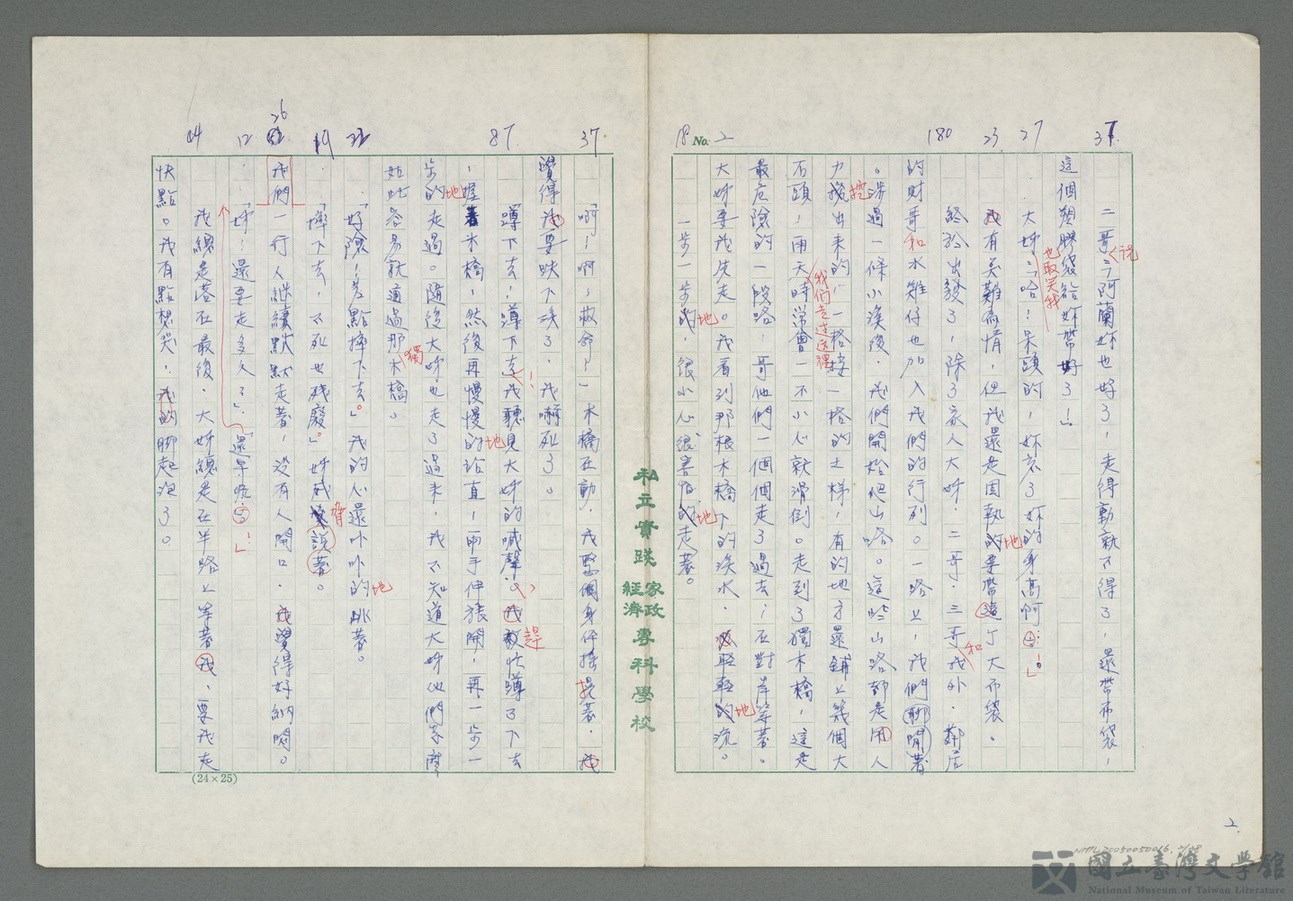 37 27 23 180
No. 2
18
二哥:「阿蘭妳也好了,走得動就不得了,還帶布袋,
說
這個塑膠袋給妳帶好了!」
大姊:「哈!呆頭的,妳忘了妳的身高啊!」
也取笑我
我有点難為情,但我還是固執的要帶這個大布袋。
地
終於出發了,除了家人大姊、二哥、三哥我外,鄰居
和
的財哥和水雞仔也加入我們的行列。一路上,我們聊開著
。涉過一條小溪後,我們開始爬山路。這些山路都是用人
力挖出來的,一格接一格的土梯,有的地方還鋪上幾個大
挖
石頭,雨天時常會一不小心就滑倒。走到了獨木橋,這是
我們走這這裡
最危險的一段路,哥他們一個個走了過去,在對岸等著。
大姊要我先走。我看到那根木橋下的溪水,輕輕的流。
地
一步一步的,很小心、很害怕的走著。
地 地
37 87 22 19 26 12 44
「啊!啊!救命!」木橋在動,我整個身仔搖晃著,我
覺得我要映下球了,我嚇死了。
「蹲下去!蹲下去!」我聽見大姊的喊聲,我趕忙蹲了下去
趕
,握著木橋,然後再慢慢的站直,兩手伸張開,再一步一
地
步的走過。隨後大姊也走了過來,我不知道大姊他們怎麼
地
如此容易就通過那木橋。
獨
「好險!差點摔下去。」我的心還卟卟的跳著。
地
「摔下去,不死也殘廢。」姊威脅說著。
脅
我們一行人繼續默默走著,沒有人開口,我覺得好納悶。
「姊!還要走多久?」「還早呢!」
我總是落在最後,大姊總是在半路上等著我,要我走
快點。我有點想哭,我的腳起泡了。
(24×25)
私立實踐家政經濟專科學校
2
NMTL20050050016
國立臺灣文學館
National Museum of Taiwan Literature